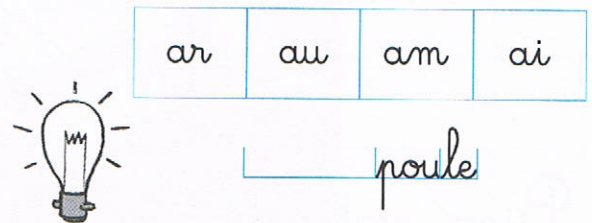 ar au am ai
poule